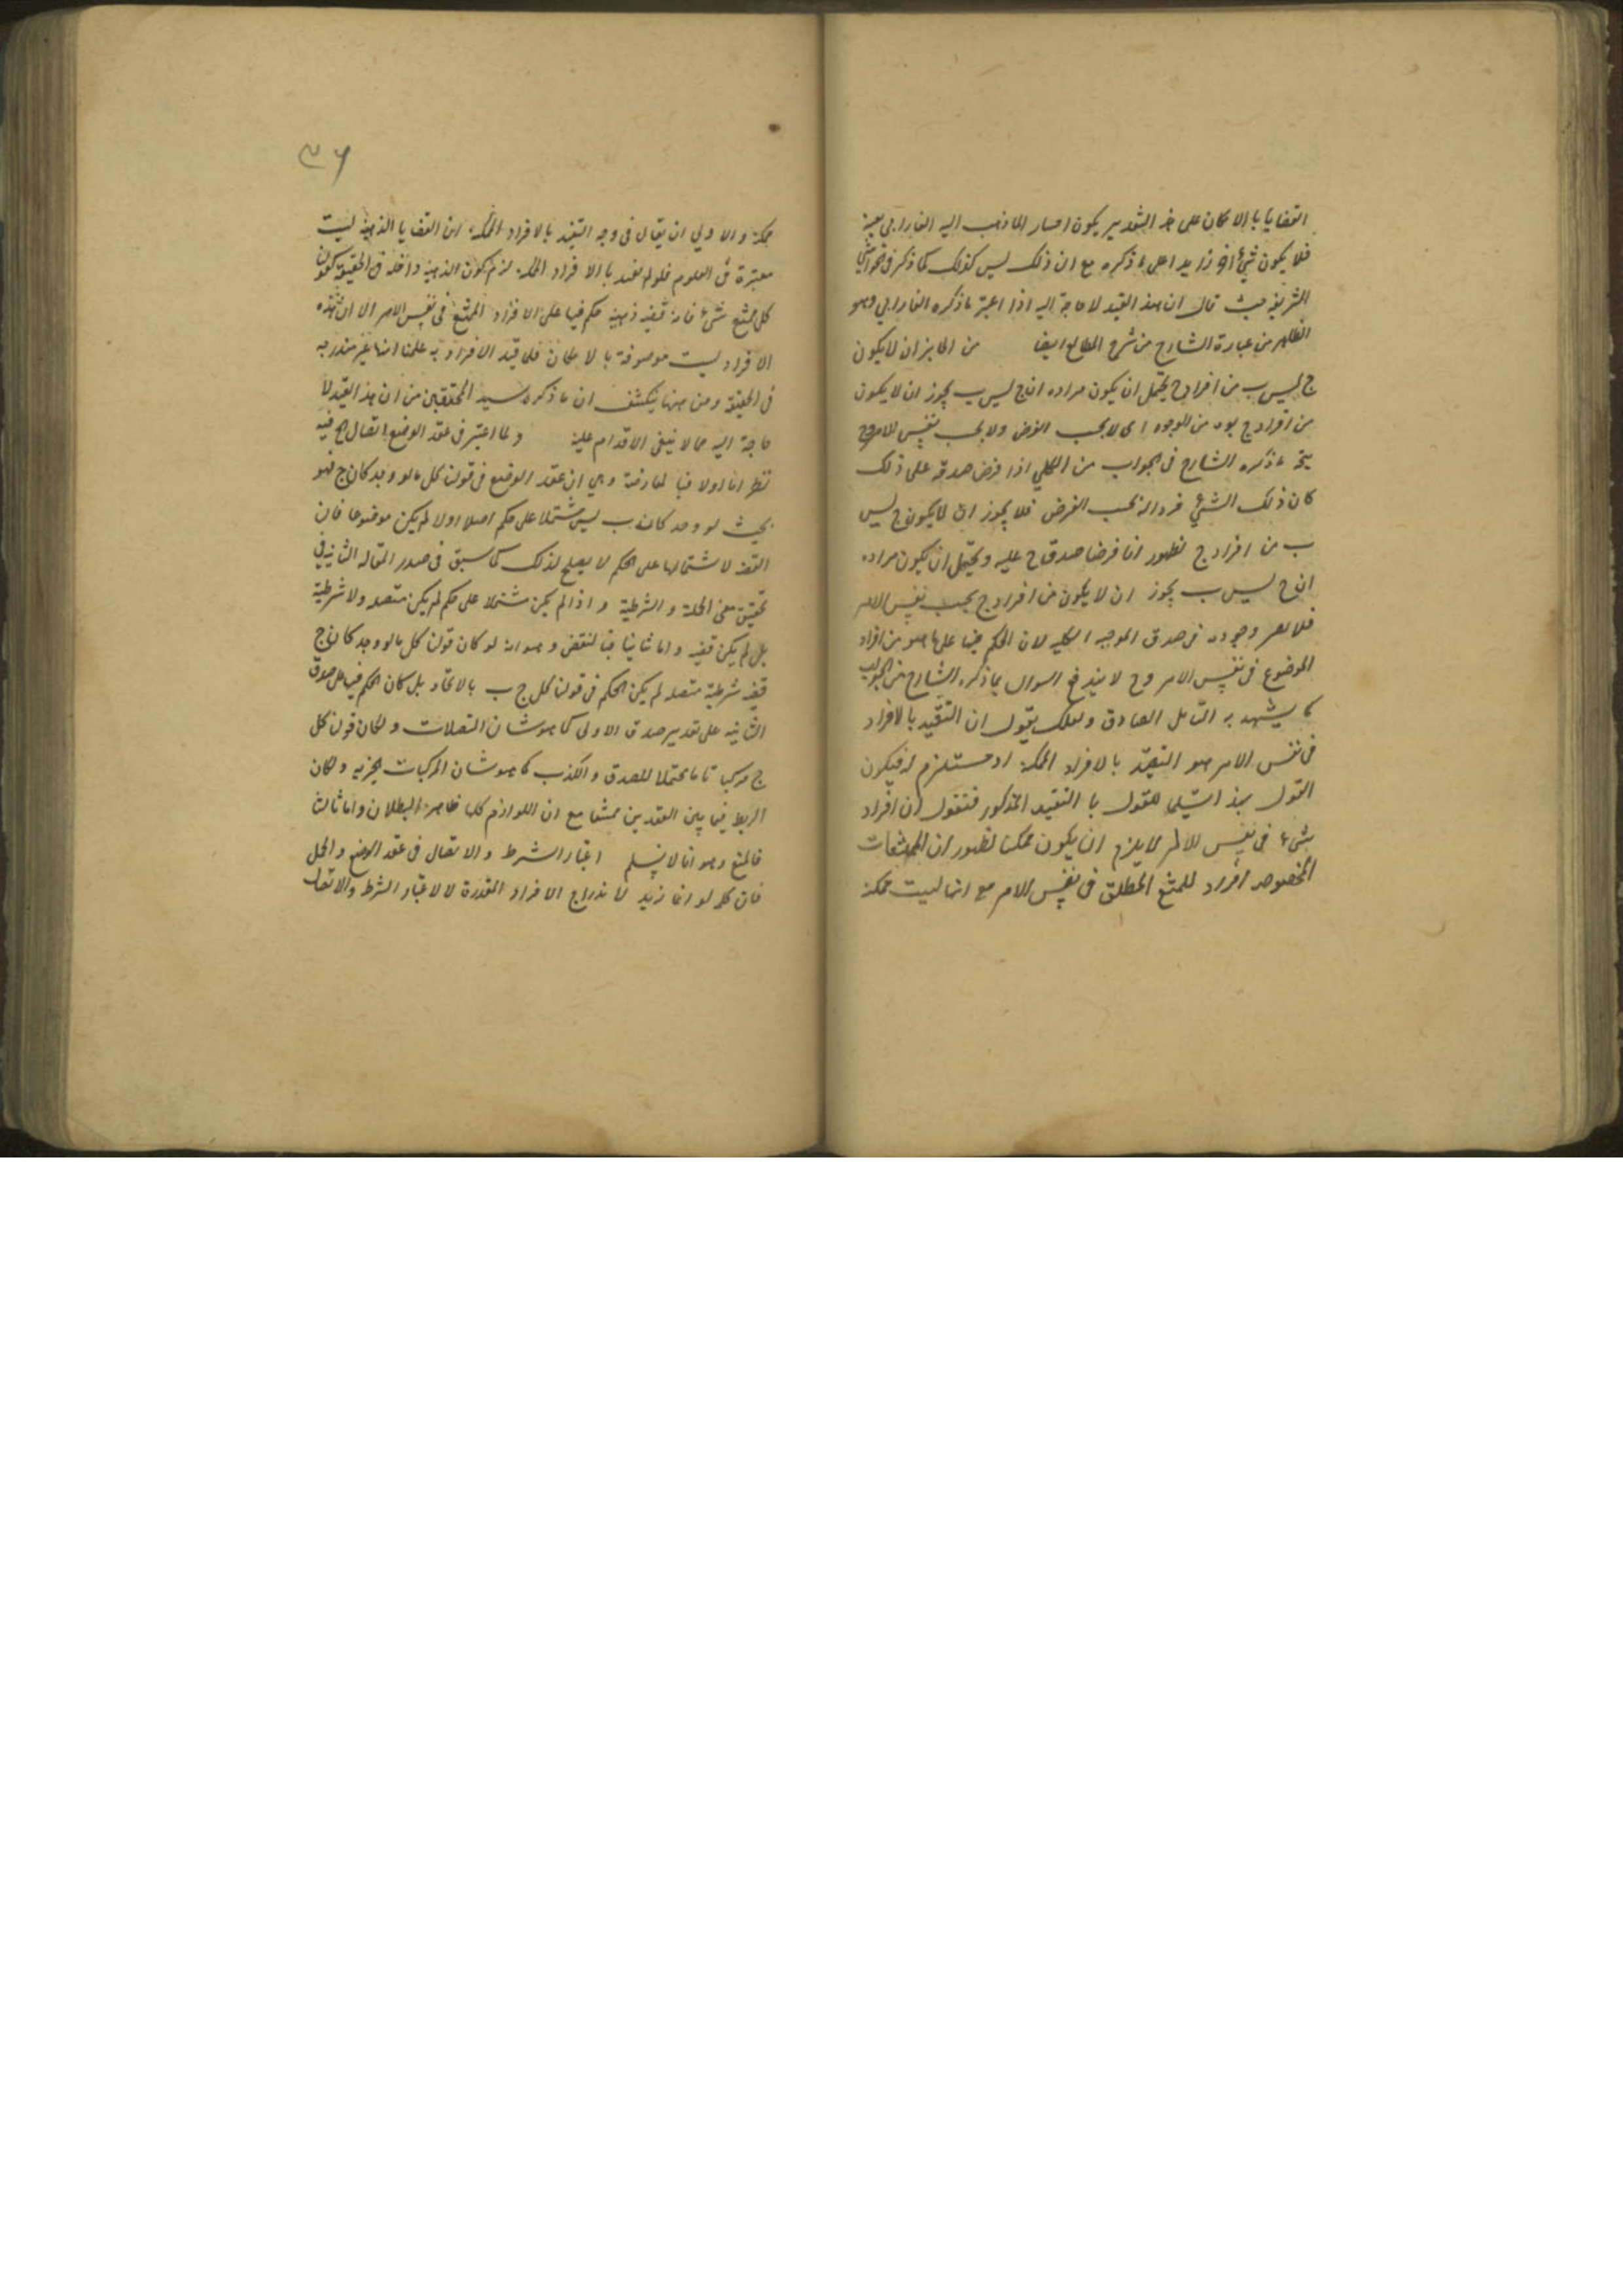 القضايا بالامكان على هذا التقدير يكون اشار الى ما ذهب اليه الفارابي بعينه
فلا يكون شيئا اخر زايدا على ما ذكره مع ان ذلك ليس كذلك كما ذكر فى الحواشى
الشريفة حيث قال ان هذا القيد لا حاجة اليه اذا اعتبر ما ذكره الفارابي وهو
الظاهر من عبارة الشارح من شرح المطالع ايضا من الجايز ان لا يكون
ج ليس ب من افراد ج يحتمل ان يكون مراده ان ج ليس ب يجوز ان لا يكون
من افراد ج بوجه من الوجوه اى لا بحسب الفرض ولا بحسب نفس الامر وح
يتجه ما ذكره الشارح فى الجواب من الكلي اذا فرض صدقه على ذلك
كان ذلك الشئ فردا له بحسب الفرض فلا يجوز ان لا يكون ج ليس
ب من افراد ج لظهور انا فرضنا صدق ج عليه ويحتمل ان يكون مراده
ان ج ليس ب يجوز ان لا يكون من افراد ج بحسب نفس الامر
فلا يضر وجوده فى صدق الموجبه الكليه لان الحكم فيها على ما هو من افراد
الموضوع فى نفس الامر وح لا يندفع السوال بما ذكره الشارح من الجواب
كما يشهد به التامل الصادق ولعلك تقول ان التقييد بالافراد
فى نفس الامر هو التقييد بالافراد الممكنة او مستلزم له فيكون
القول بهذا تسليما للقول با التقييد المذكور فنقول ان افراد
شئ فى نفس الامر لا يلزم ان يكون ممكنا لظهور ان الممتنعات
المخصوصه افراد للممتنع المطلق فى نفس الامر مع انها ليست ممكنة
٣٦
ممكنة والاولي ان يقال فى وجه التقييد بالافراد الممكنة ان القضايا الذهنية ليست
معتبرة فى العلوم فلو لم تقيد با الافراد الممكنة لزم كون الذهنية داخلة فى الحقيقية كقولنا
كل ممتنع شئ فانه قضيه ذهنية حكم فيها على الافراد الممتنع فى نفس الامر الا ان هذه
الافراد ليست موصوفة بالامكان فلما قيد الافراد به علمنا انها غير مندرجه
فى الحقيقة ومن هنا ينكشف ان ما ذكره سيد المحققين من ان هذا القيد لا
حاجة اليه مما لا ينبغى الاقدام عليه ولما اعتبر فى عقد الوضع اتصال الخ فيه
نظر اما اولا فبا لمعارضة وهى ان عقد الوضع فى قولنا كل ما لو وجد كان ج فهو
بحيث لو وجد كان ب ليس مشتملا على حكم اصلا اولا لم يكن موضوعا فان
القضيه لاشتمالها على الحكم لا يصلح لذلك كما سبق فى صدر المقاله الثانيه فى
تحقيق معنى الحملية والشرطية واذا لم يكن مشتملا على حكم لم يكن متصله ولا شرطية
بل لم يكن قضيه واما ثانيا فبا لنقض وهو انه لو كان قولنا كل ما لو وجد كان ج
قضيه شرطية متصله لم يكن الحكم فى قولنا كل ج ب بالاتحاد بل كان الحكم فيها على صدق
الثانيه على تقدير صدق الاولى كما هو شان المتصلات ولكان قولنا كل
ج مركبا تاما محتملا للصدق والكذب كما هو شان المركبات الخبريه ولكان
الربط فيما بين العقدين ممتنعا مع ان اللوازم كلها ظاهرة البطلان واما ثالثا
فالمنع وهو انا لا نسلم اعتبار الشرط والاتصال فى عقد الوضع والحمل
فان كلمه لو انما زيد لاندراج الافراد المقدرة لا لاعتبار الشرط والاتصال